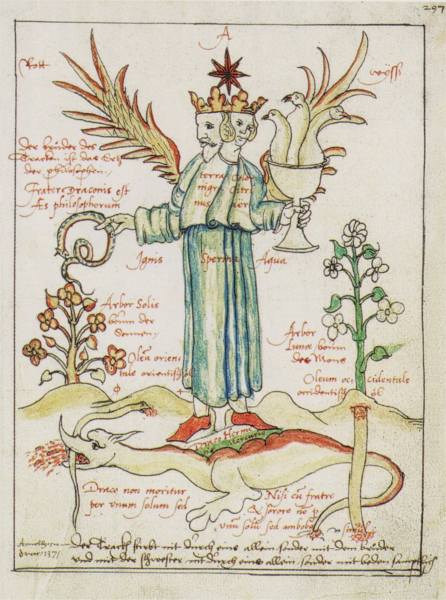 297
A
Rott
Weÿss
Der brüder des
Tracken ist das Ertz
der philosophen
Frater Draconis est
Æs philosophorum
terra
nigre
Ignis
Aqua
Arbor Solis
boum der
Sonnen
Oleū orien
tale orientisch öl
Arbor
Lunæ boum
des Mons
Oleum occidentale
occidentisch öl
Draco non moritur
per vnum solum sed
Nisi cū fratre
& sorore nō p
vnū solū sed ambob
& simul
der Track stirbt nit durch eins allein sonder mit dem bruder
vnd mit der schwester nit durch eins allein sonder mit beden